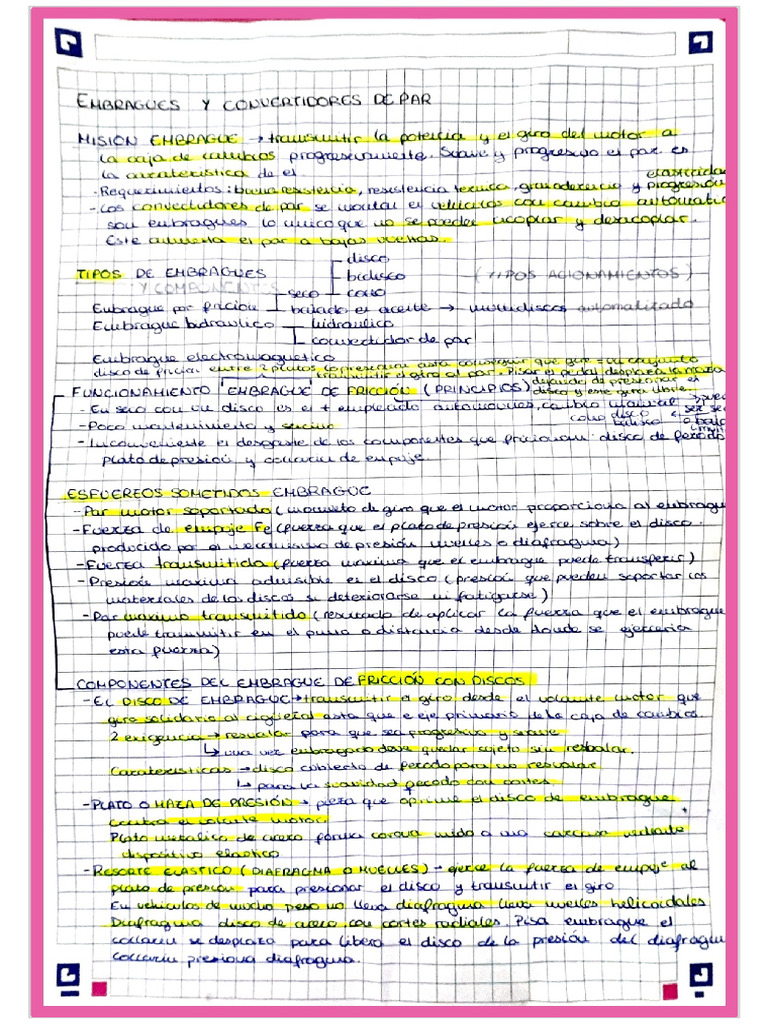 EMBRAGUES Y CONVERTIDORES DE PAR
MISIÓN EMBRAGUE → transmitir la potencia y el giro del motor a
la caja de cambios progresivamente. Suave y progresivo el par es
la caraterística de el
elasticidad
- Requerimientos: buena resistencia, resistencia termica, gran aderencia y progresión
- Los convertidores de par se montan el vehiculos con cambio automatic
son embragues lo unico que no se pueden acoplar y desacoplar.
Este aumenta el par a bajas vueltas.
TIPOS DE EMBRAGUES
Y COMPONENTES
(TIPOS ACIONAMIENTOS)
disco
bidisco
Embrague por fricion seco cono
bañado el aceite → multidiscos automatizado
Embrague hidraulico hidraulico
convertidor de par
Embrague electromagnetico
disco de fricion entre 2 platos conseguir que gire = un conjunto
transmitir el giro al par. Pisar el pedal desplaza la maza
FUNCIONAMIENTO EMBRAGUE DE FRICCIÓN (PRINCIPIOS) dejando de presionar el
disco y este gira libre.
- En seco con un disco es el + empleado automoviles, cambio manual
cono disco
bidisco
ser se
o baja
- Poco mantenimiento y sencillo
- Inconveniente el desgaste de los componentes que friccionan: disco de ferodo
plato de presión y collarin de empuje.
ESFUEREOS SOMETIDOS EMBRAGUE
- Par motor soportado (momento de giro que el motor proporciona al embrague
- Fuerza de empuje Fe (fuerza que el plato de presión ejerce sobre el disco.
producido por el mecanismo de presión muelles o diafragma)
- Fuerza transmitida (fuerza maxima que el embrague puede transferir)
- Presión maxima admisible es el disco (presión que pueden soportar los
materiales de los discos si deteriorarse ni fatigarse)
- Par maximo transmitido (resultado de aplicar la fuerza que el embrague
puede transmitir en el punto o distancia desde donde se ejerceria
esta fuerza)
COMPONENTES DEL EMBRAGUE DE FRICCIÓN CON DISCOS
- EL DISCO DE EMBRAGUE → transmitir el giro desde el volante motor que
gira solidario al cigüeñal asta que e eje primario de la caja de cambios.
2 exigencia → resvalar para que sea progresivo y suave
↳ una vez embragado deve quedar sujeto sin resbalar.
Carateristicas → disco cubierto de ferodo para no resvalar
↳ para la suavidad ferodo con cortes
- PLATO O MAZA DE PRESIÓN → pieza que oprime el disco de embrague
contra el volante motor.
Plato metalica de acero forma corona unido a una carcasa mediante
dispositivo elastico
- RESORTE ELASTICO (DIAFRAGMA O MUELLES) → ejerce la fuerza de empuje al
plato de presión para presionar el disco y transmitir el giro
En vehículos de mucho peso no lleva diafragma lleva muelles helicoidales
Diafragma disco de acero con cortes radiales. Pisa embrague el
collarin se desplaza para libera el disco de la presión del diafragm
collarin presiona diafragma.